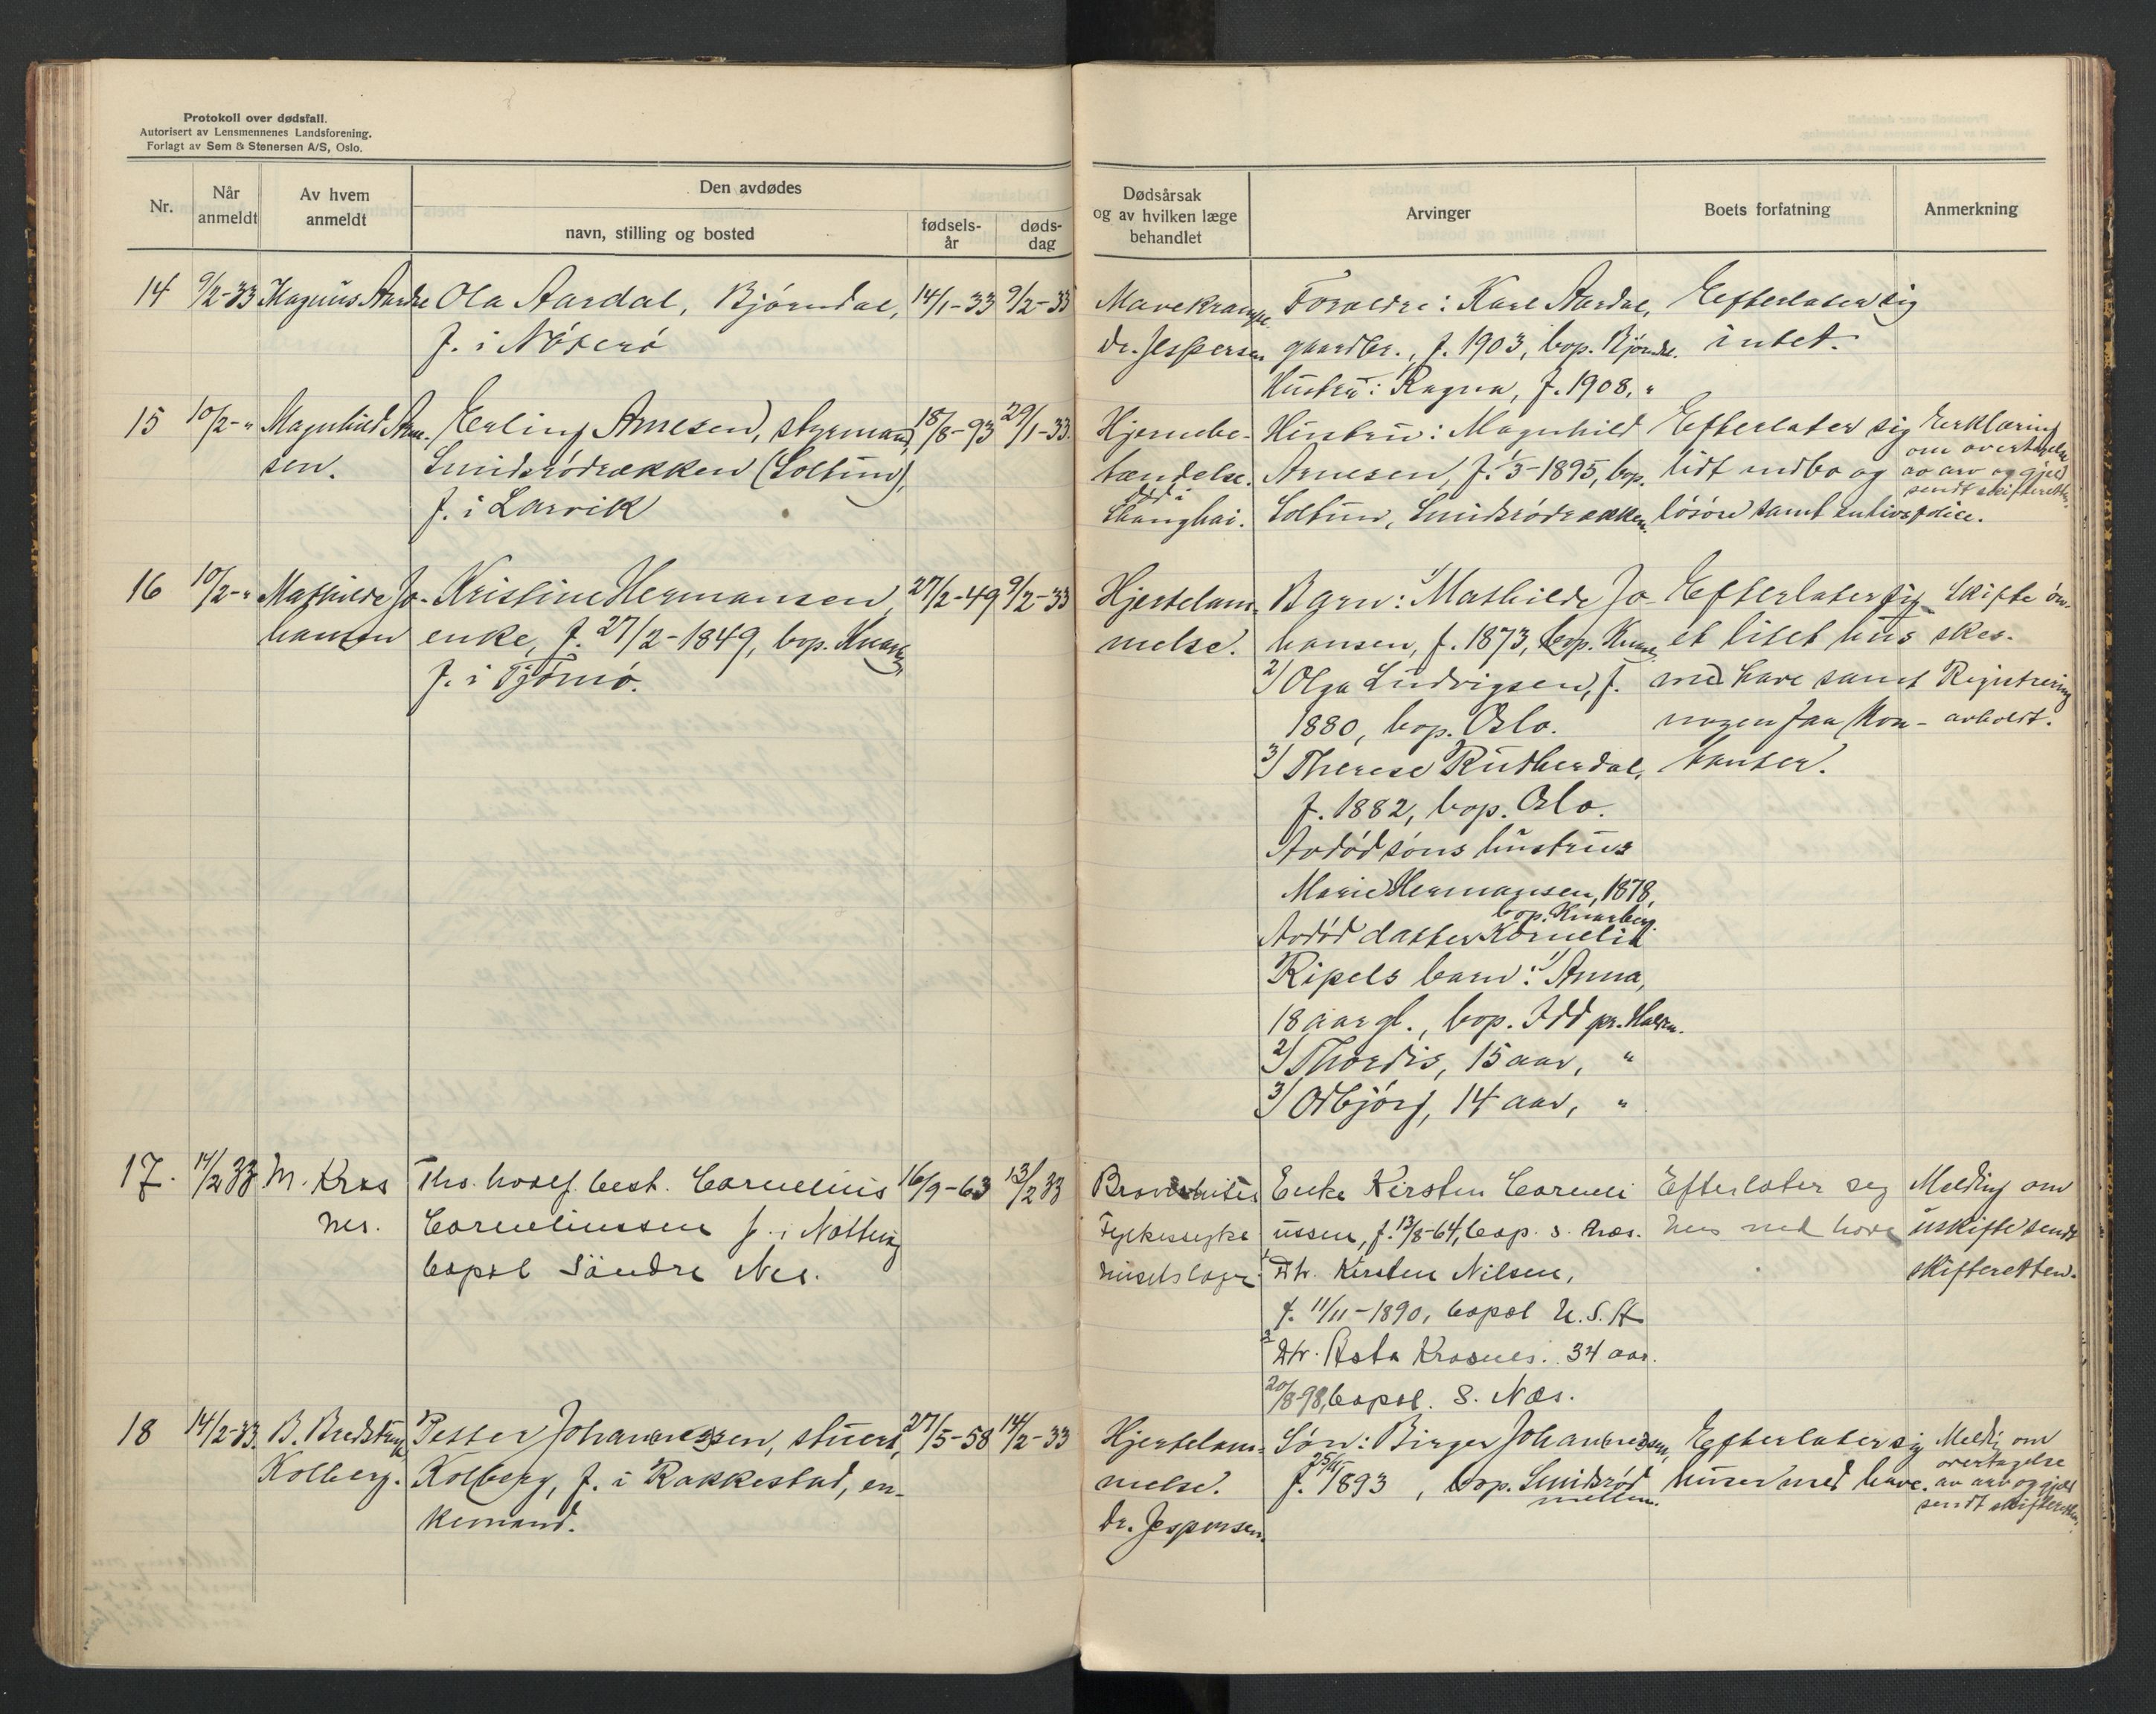 Protokoll over dødsfall.
Autorisert av Lensmennenes Landsforening.
Forlagt av Sem & Stenersen A/S, Oslo.
Nr.
Når anmeldt
Av hvem anmeldt
Den avdødes
navn, stilling og bosted
fødsels-år
døds-dag
Dødsårsak og av hvilken læge behandlet
Arvinger
Boets forfatning
Anmerkning
14 9/2-33 Magnus Aardal Ola Aardal, Bjørndal, 14/1-33 9/2-33
f. i Nøterö
Mavekrampe.
dr. Jespersen
Foraldre: Karl Aardal,
gaardbr., f. 1903, bop. Bjørndal.
Hustru: Ragna, f. 1908, "
Efterlater sig
intet.
15 10/2-" Magnhild Arne- Erling Arnesen, styrmand, 18/8-93 29/1-33.
sen. Smidsrödrækken (Soltun),
f. i Larvik
Hjernebe-
tændelse.
död i
Shanghai.
Hustru: Magnhild
Arnesen, f. 1/3-1895, bop.
Soltun, Smidsrödrækken.
Efterlater sig
lidt indbo og
lösöre samt en livspolice.
Erklæring
om overtagelse
av arv og gjeld
sendt skifteretten.
16 10/2-" Mathilde Jo- Kristine Hermansen, 27/2-49 9/2-33
hansen enke, f. 27/2-1849, bop. Knarb.
f. i Tjömö.
Hjertelam-
melse.
Barn: 1/ Mathilde Jo-
hansen, f. 1873, bop. Knarb.
2/ Olga Ludvigsen, f.
1880, bop. Oslo.
3/ Therese Rudberdal,
f. 1882, bop. Oslo.
Avdöd söns hustrus
Marie Hermansen, 1878,
bop. Knarberg.
Avdöd datter Kornelia
Ripels barn: 1/ Anna,
18 aar gl., bop. Idd pr. Halden.
2/ Thordis, 15 aar, "
3/ Odbjörg, 14 aar, "
Efterlater sig
et litet hus
med have samt
nogen faa kon-
tanter.
Skifte ön-
skes.
Registrering
avholdt.
17. 14/2 33 M. Kros Ths. hvalf. best. Cornelius 16/9-63 13/2 33
nes. Corneliussen f. i Nötteröy
bopæl Söndre Nes.
Fylkessyke
husets læge
Enke Kirsten Corneli
ussen, f. 13/8-64, bop. S. Næs.
1 Dtr. Kirsten Nilsen,
f. 11/11-1890, bopæl U.S.A
2 Dtr. Asta Krosnes. 34 aar.
20/8-98, bopæl. S. Næs.
Efterlater seg
hus med have
Melding om
uskifte sendt
skifteretten.
18 14/2-33. B. Bredstrup Petter Johannessen, stuert, 27/5-58 14/2-33
Kolberg. Kolberg, f. i Rakkestad, en-
kemand.
Hjertelam-
melse.
Dr. Jespersen.
Søn: Birger Johannessen,
f. 1893, bop. Smidsröd
mellem.
Efterlater sig
huser med have.
Meldig om
overtagelse
av arv og gjeld
sendt skifteretten.